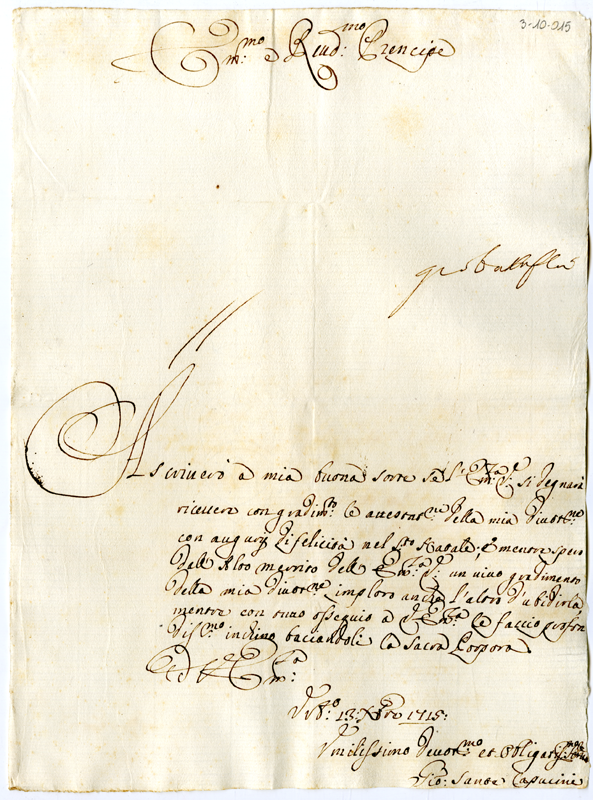 3-10-915
Em:mo e Reud:mo Prencipe
Ascriuerò a mia buona sorte se l'Em:za V: si degnarà
riceuere con gradim:to le attestat:ni della mia diuot:ne
con augurij di felicità nel S:to Natale; e mentre spero
dall' Alto merito dell' Em:za V: un viuo gradimento
della mia diuot:ne imploro anche l'altro d'ubidirla,
mentre con tutto ossequio a V: Em:za le faccio profon
diss:mo inchino bacciandoli la Sacra Porpora
Di V: Em:za
13 Xbre 1715:
Vmilissimo Deuot:mo et Obligatiss:mo
Gio: Capucini